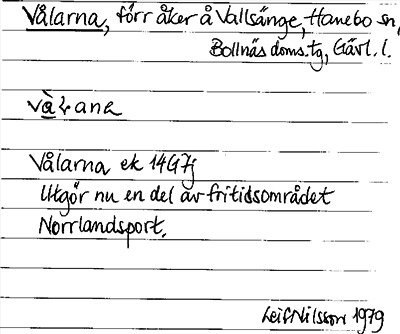 Vålarna, förr åker å Vallsänge, Hanebo sn,
Bollnäs doms.tg, Gävl. l.
Vålarna ek 14G7j
Utgör nu en del av fritidsområdet
Norrlandsport.
Leif Nilsson 1979